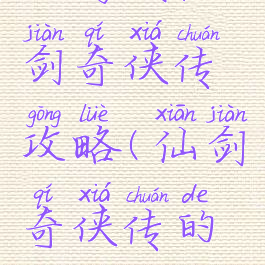 jiàn qí xiá chuán
剑奇侠传
gōng lüè xiān jiàn
攻略(仙剑
qí xiá chuán de
奇侠传的